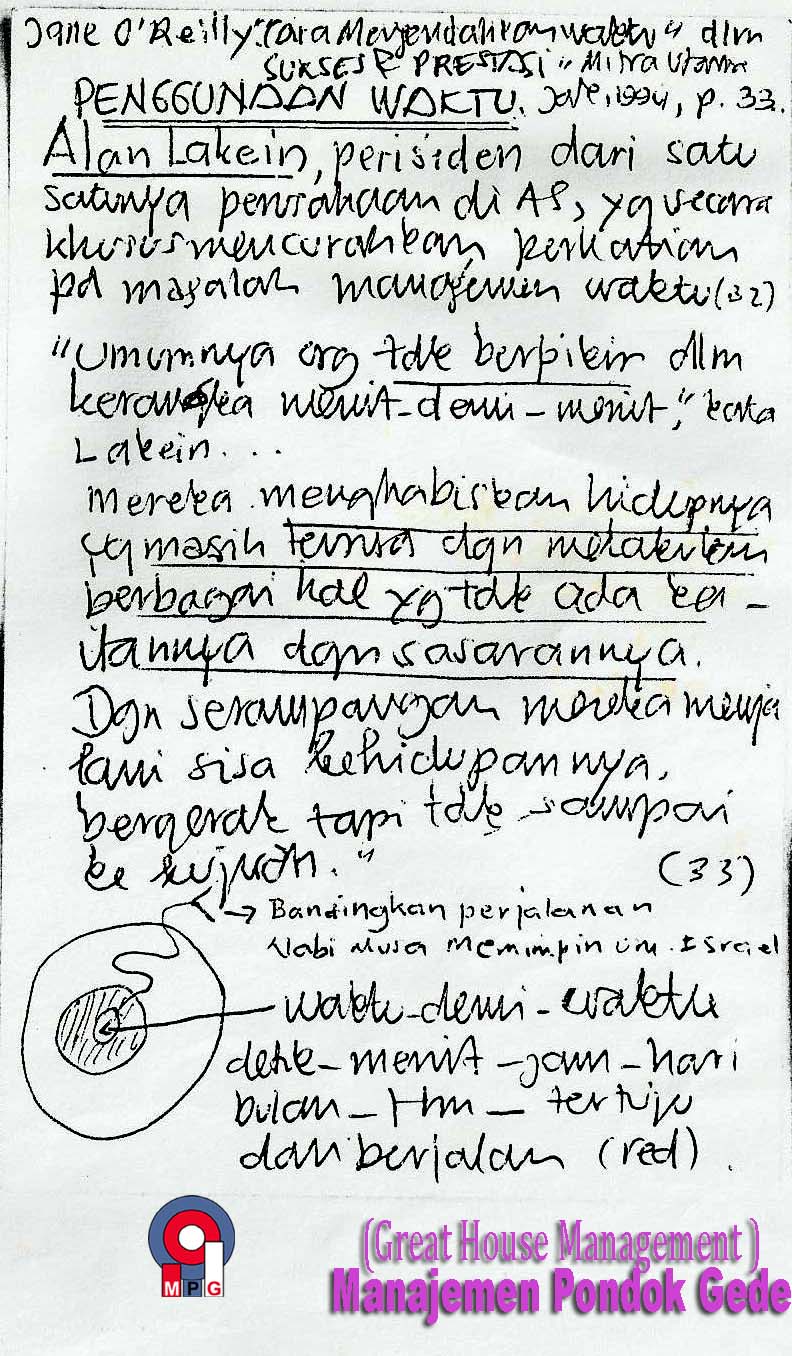 Jane O'Reilly "Cara Mengendalikan waktu" dlm
SUKSES & PRESTASI" Mitra Utama
PENGGUNAAN WAKTU. Jkt, 1994, p. 33.
Alan Lakein, perisiden dari satu
satunya perusahaan di AS, yg secara
khusus mencurahkan perhatian
pd masalah managemen waktu (32)
"Umumnya org tdk berpikir dlm
kerangka menit-demi-menit," kata
Lakein...
Mereka menghabiskan hidupnya
yg masih tersisa dgn melakukan
berbagai hal yg tdk ada ka-
itannya dgn sasarannya.
Dgn serampangan mereka menja
lani sisa kehidupannya,
bergerak tapi tdk sampai
ke tujuan." (33)
→ Bandingkan perjalanan
Nabi Musa memimpin um. Israel
waktu-demi-waktu
detik-menit-jam-hari
bulan-thn-tertuju
dan berjalan (red).
MPG
(Great House Management )
Manajemen Pondok Gede